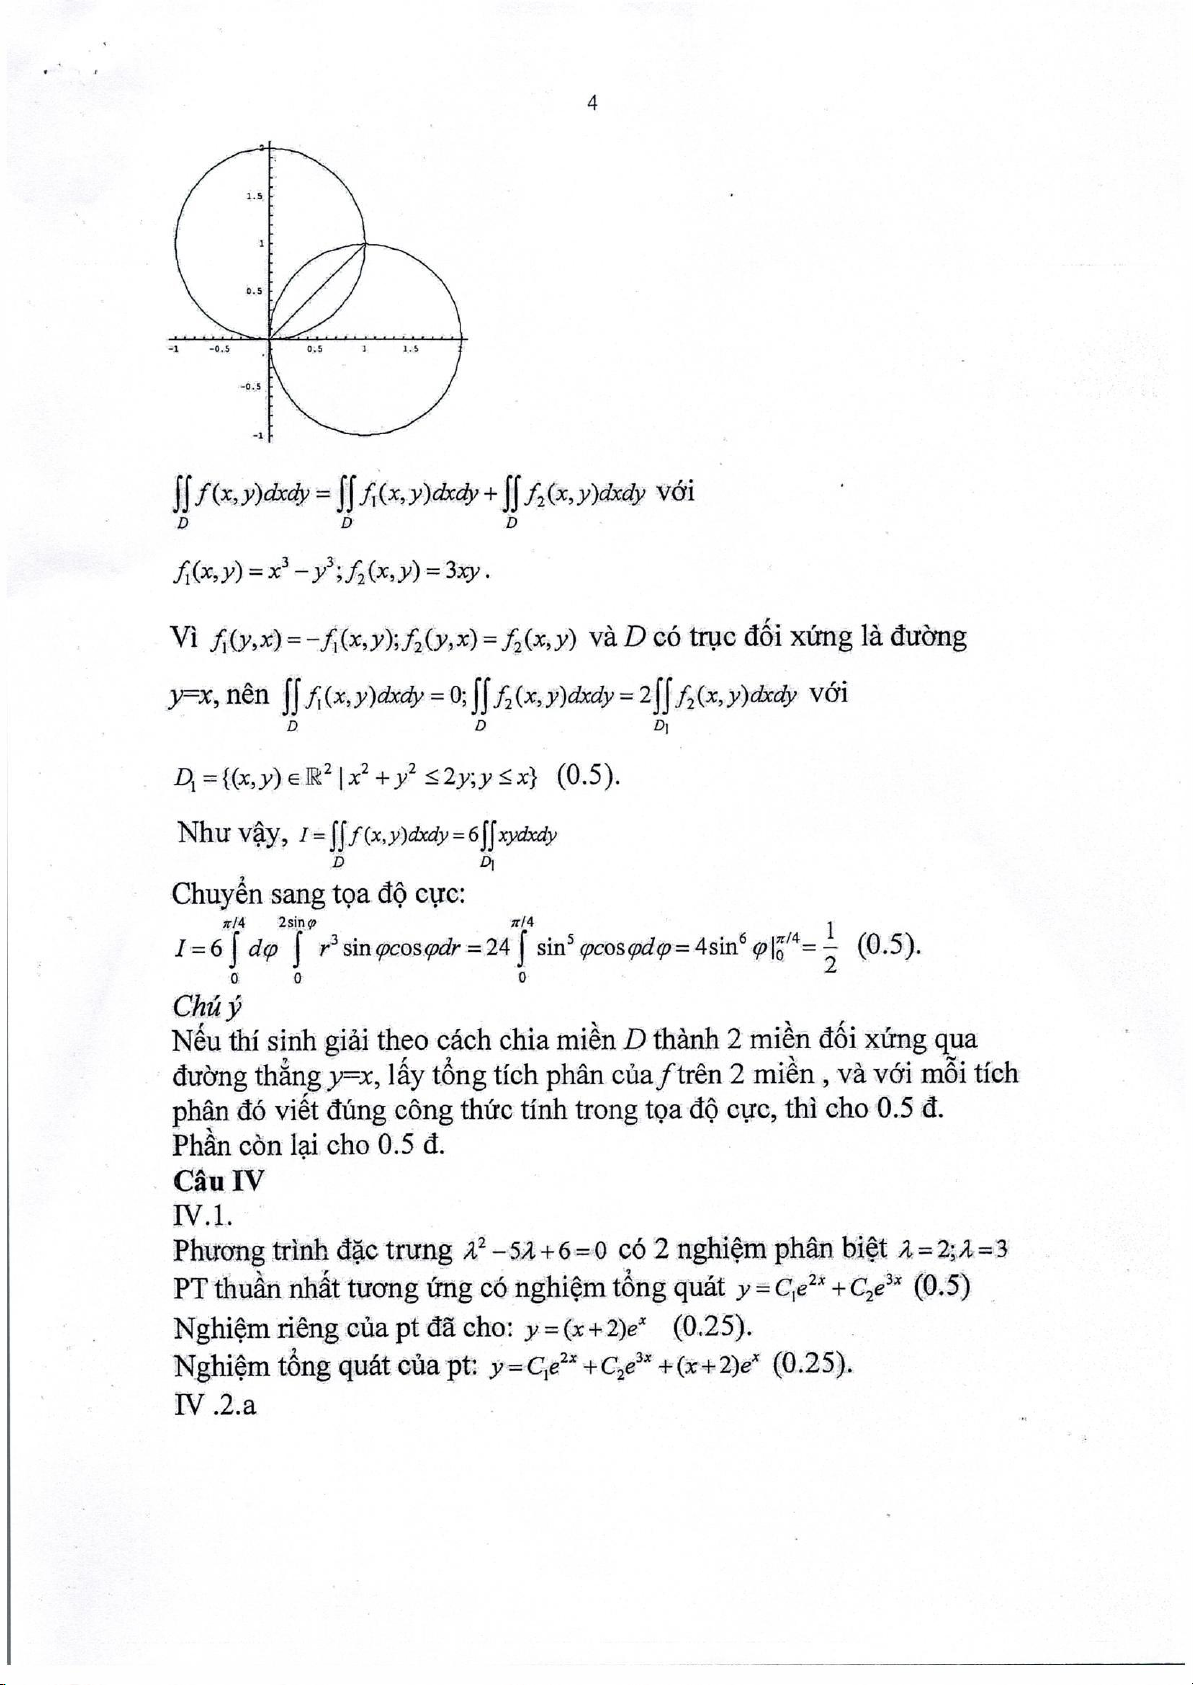 4
2
1.5
1
0.5
-1 -0.5 0.5 1 1.5 2
-0.5
-1
∬_D f(x,y)dxdy = ∬_D f₁(x,y)dxdy + ∬_D f₂(x,y)dxdy với
f₁(x,y) = x³ − y³; f₂(x,y) = 3xy.
Vì f₁(y,x) = −f₁(x,y); f₂(y,x) = f₂(x,y) và D có trục đối xứng là đường
y=x, nên ∬_D f₁(x,y)dxdy = 0; ∬_D f₂(x,y)dxdy = 2∬_D₁ f₂(x,y)dxdy với
D₁ = {(x,y) ∈ ℝ² | x² + y² ≤ 2y; y ≤ x} (0.5).
Như vậy, I = ∬_D f(x,y)dxdy = 6∬_D₁ xydxdy
Chuyển sang tọa độ cực:
I = 6 ∫_0^{π/4} dφ ∫_0^{2sinφ} r³ sin φcosφdr = 24 ∫_0^{π/4} sin⁵ φcosφdφ = 4sin⁶ φ|_0^{π/4} = 1/2 (0.5).
Chú ý
Nếu thí sinh giải theo cách chia miền D thành 2 miền đối xứng qua
đường thẳng y=x, lấy tổng tích phân của f trên 2 miền , và với mỗi tích
phân đó viết đúng công thức tính trong tọa độ cực, thì cho 0.5 đ.
Phần còn lại cho 0.5 đ.
Câu IV
IV.1.
Phương trình đặc trưng λ² − 5λ + 6 = 0 có 2 nghiệm phân biệt λ = 2; λ = 3
PT thuần nhất tương ứng có nghiệm tổng quát y = C₁e^{2x} + C₂e^{3x} (0.5)
Nghiệm riêng của pt đã cho: y = (x + 2)e^x (0.25).
Nghiệm tổng quát của pt: y = C₁e^{2x} + C₂e^{3x} + (x + 2)e^x (0.25).
IV .2.a